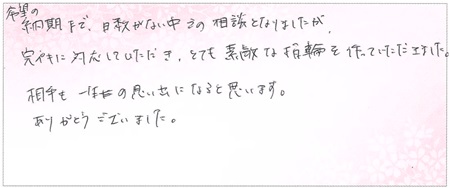 希望の
納期まで、日数がない中での相談となりましたが、
完ペキに対応していただき、とても素敵な指輪を作っていただきました。
相手も一生の思い出になると思います。
ありがとうございました。